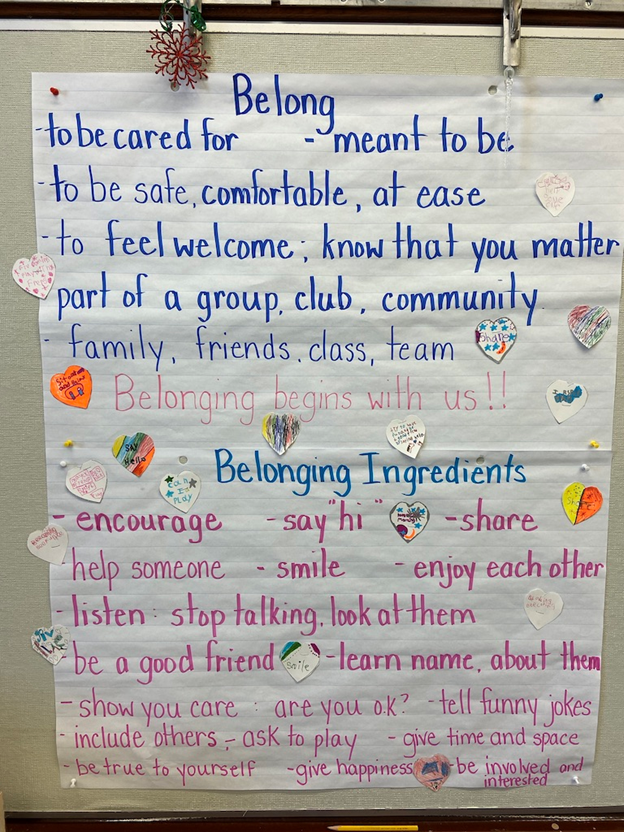 Belong
-to be cared for - meant to be
-to be safe, comfortable, at ease
-to feel welcome; know that you matter
part of a group, club, community
- family, friends, class, team
Share
Belonging begins with us!!
Say Hello
Belonging Ingredients
can I PLAY
- encourage - say "hi" - share
help someone - smile - enjoy each other
- listen: stop talking, look at them
be a good friend - learn name, about them
Smile
- show you care : are you o.k? - tell funny jokes
- include others - ask to play - give time and space
- be true to yourself - give happiness - be involved and
interested